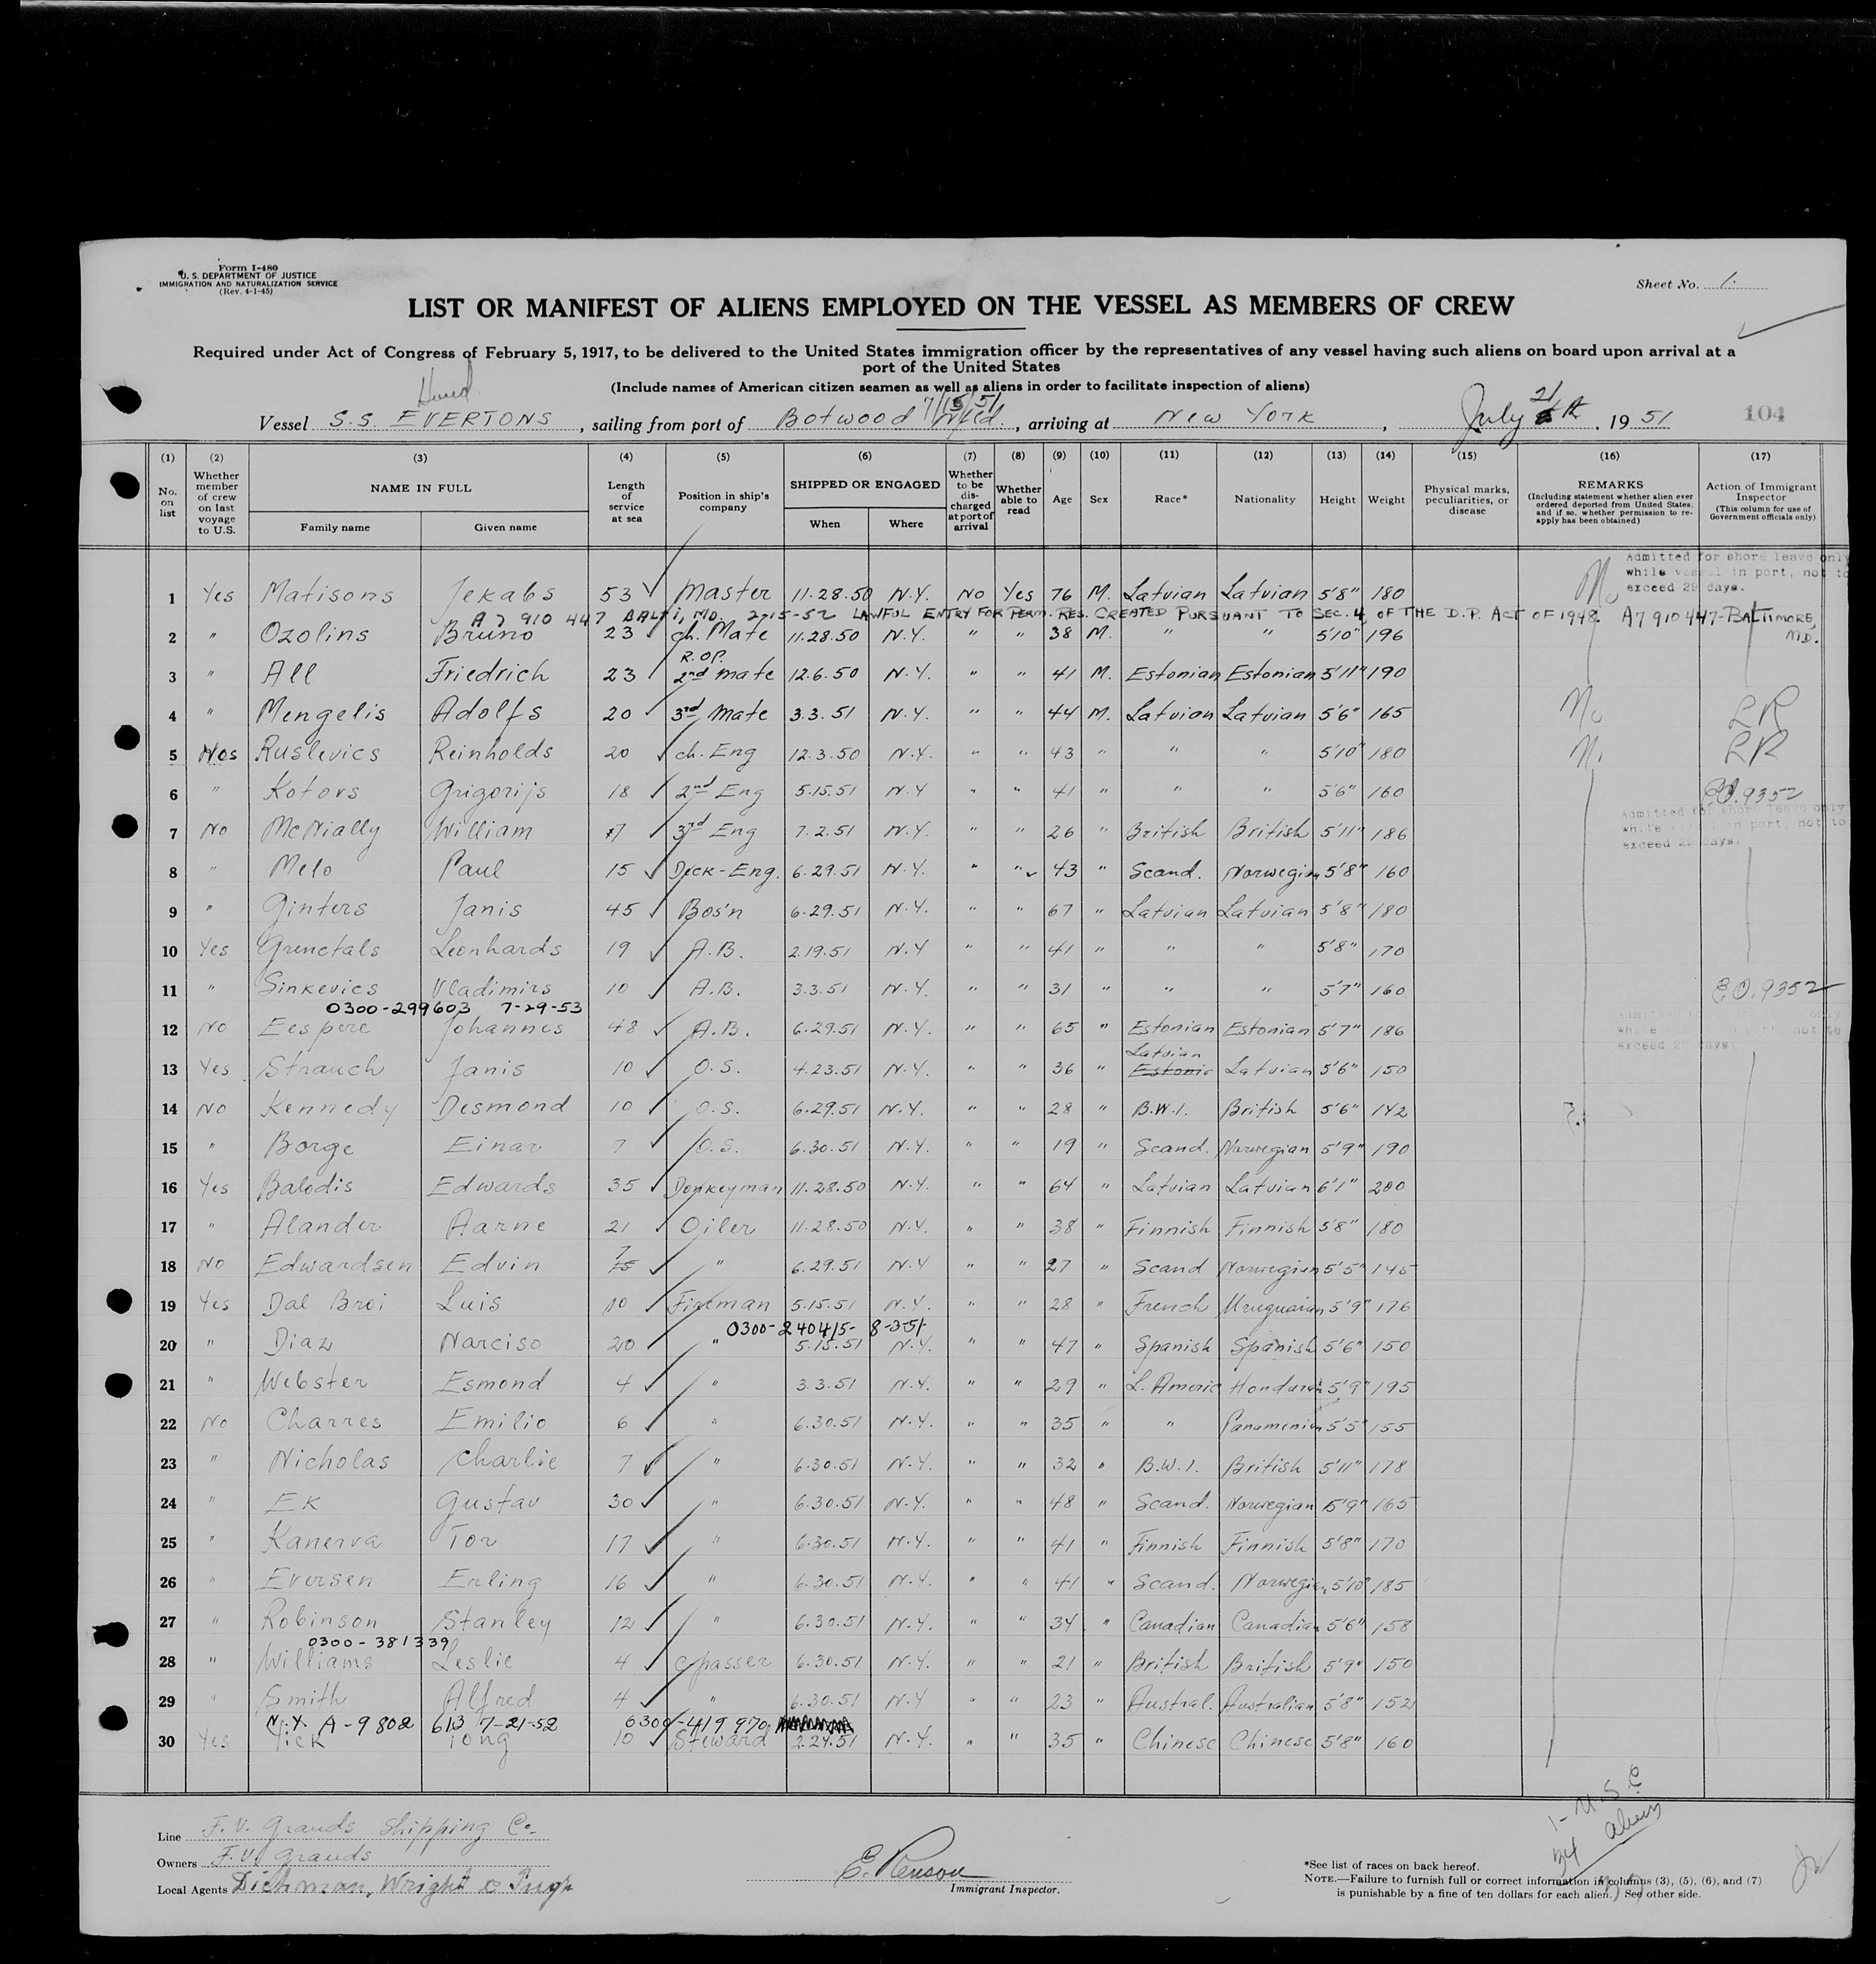 Form I-480
U. S. DEPARTMENT OF JUSTICE
IMMIGRATION AND NATURALIZATION SERVICE
(Rev. 4-1-45)
Sheet No. 1.
LIST OR MANIFEST OF ALIENS EMPLOYED ON THE VESSEL AS MEMBERS OF CREW
Required under Act of Congress of February 5, 1917, to be delivered to the United States immigration officer by the representatives of any vessel having such aliens on board upon arrival at a
port of the United States
(Include names of American citizen seamen as well as aliens in order to facilitate inspection of aliens)
7/15/51
Vessel S.S. EVERTONS, sailing from port of Botwood Nfld., arriving at New York, July 21, 1951 104
(1) (2) (3) (4) (5) (6) (7) (8) (9) (10) (11) (12) (13) (14) (15) (16) (17)
No. on list Whether member of crew on last voyage to U.S. NAME IN FULL Family name Given name Length of service at sea Position in ship's company SHIPPED OR ENGAGED When Where Whether to be discharged at port of arrival Whether able to read Age Sex Race* Nationality Height Weight Physical marks, peculiarities, or disease REMARKS (Including statement whether alien ever ordered deported from United States, and if so, whether permission to re-apply has been obtained) Action of Immigrant Inspector (This column for use of Government officials only)
Admitted for shore leave only
while vessel in port, not to
exceed 29 days.
1 Yes Matisons Jekabs 53 Master 11.28.50 N.Y. No Yes 76 M. Latvian Latvian 5'8" 180 No
A7 910 447 BALTI, MD. 2-15-52 LAWFUL ENTRY FOR PERM. RES. CREATED PURSUANT TO SEC. 4 OF THE D.P. ACT OF 1948. A7 910 447-BALTIMORE, MD.
2 " Ozolins Bruno 23 Ch. Mate 11.28.50 N.Y. " " 38 M. " " 5'10" 196
R.OP.
3 " All Friedrich 23 2nd mate 12.6.50 N.Y. " " 41 M. Estonian Estonian 5'11" 190
4 " Mengelis Adolfs 20 3rd Mate 3.3.51 N.Y. " " 44 M. Latvian Latvian 5'6" 165 No LR
5 Ruslevics Reinholds 20 ch. Eng 12.3.50 N.Y. " " 43 " " " 5'10" 180 LR
6 " Kotovs Grigorijs 18 2nd Eng 5.15.51 N.Y " " 41 " " " 5'6" 160 E.O. 9352
Admitted for shore leave only
while vessel in port, not to
exceed 29 days.
7 No McNially William 3rd Eng 7.2.51 N.Y. " " 26 " British British 5'11" 186
8 " Melo Paul 15 Deck-Eng. 6.29.51 N.Y. " " 43 " Scand. Norwegian 5'8" 160
9 " Ginters Janis 45 Bos'n 6.29.51 N.Y. " " 67 " Latvian Latvian 5'8" 180
10 Yes Grinctals Leonhards 19 A.B. 2.19.51 N.Y " " 41 " " " 5'8" 170
11 " Sinkevics Vladimirs 10 A.B. 3.3.51 N.Y. " " 31 " " " 5'7" 160 E.O. 9352
0300-299603 7-29-53
12 No Eespere Johannes 48 A.B. 6.29.51 N.Y. " " 65 " Estonian Estonian 5'7" 186
while not to
exceed 29 days.
Latvian
13 Yes Strauch Janis 10 O.S. 4.23.51 N.Y. " " 36 " Estonia Latvian 5'6" 150
14 No Kennedy Desmond 10 O.S. 6.29.51 N.Y. " " 28 " B.W.I. British 5'6" 142
15 " Borge Einar 7 O.S. 6.30.51 N.Y. " " 19 " Scand. Norwegian 5'9" 190
16 Yes Balodis Edwards 35 Donkeyman 11.28.50 N.Y. " " 64 " Latvian Latvian 6'1" 200
17 " Alander Aarne 21 Oiler 11.28.50 N.Y. " " 38 " Finnish Finnish 5'8" 180
18 No Edwardsen Edvin 7 " 6.29.51 N.Y " " 27 " Scand Norwegian 5'5" 145
19 Yes Dal Broi Luis 10 Fireman 5.15.51 N.Y. " " 28 " French Uruguaian 5'9" 176
0300-240415- 8-3-51
20 " Diaz Narciso 20 " 5.15.51 N.Y. " " 47 " Spanish Spanish 5'6" 150
21 " Webster Esmond 4 " 3.3.51 N.Y. " " 29 " L. Americ Honduran 5'9" 195
22 No Charres Emilio 6 " 6.30.51 N.Y. " " 35 " " Panamenian 5'5" 155
23 " Nicholas Charlie 7 " 6.30.51 N.Y. " " 32 " B.W.I. British 5'11" 178
24 " Ek Gustav 30 " 6.30.51 N.Y. " " 48 " Scand. Norwegian 5'9" 165
25 " Kanerva Tor 17 " 6.30.51 N.Y. " " 41 " Finnish Finnish 5'8" 170
26 " Eversen Erling 16 " 6.30.51 N.Y. " " 41 " Scand. Norwegian 5'10" 185
27 " Robinson Stanley 12 " 6.30.51 N.Y. " " 34 " Canadian Canadian 5'6" 158
0300-381339
28 " Williams Leslie 4 C/passer 6.30.51 N.Y. " " 21 " British British 5'9" 150
29 " Smith Alfred 4 " 6.30.51 N.Y " " 23 " Austral. Australian 5'8" 152
N.Y. A-9 802 613 7-21-52 0300-419 970
30 Yes Yick Tong 10 Steward 2.24.51 N.Y. " " 35 " Chinese Chinese 5'8" 160
1- U.S.C
34 aliens
Line F.V. Grauds Shipping Co.
Owners F.V. Grauds
Local Agents Dichman, Wright & Pugh
Immigrant Inspector.
*See list of races on back hereof.
NOTE.—Failure to furnish full or correct information in columns (3), (5), (6), and (7)
is punishable by a fine of ten dollars for each alien. See other side.